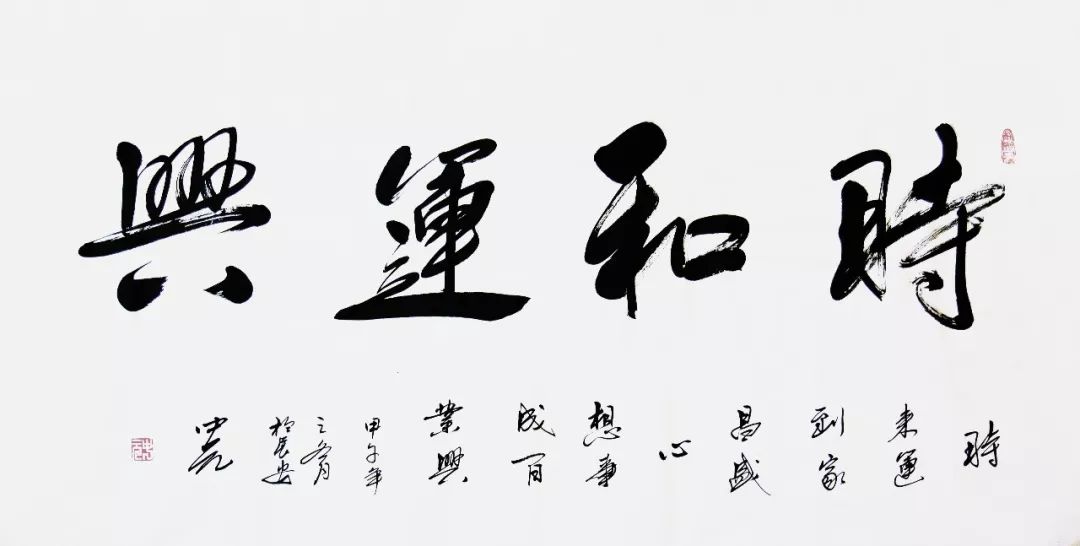 時和運興
時
来運
到家
昌盛
心
想事
成百
業興
甲午年
之冬月
於長安